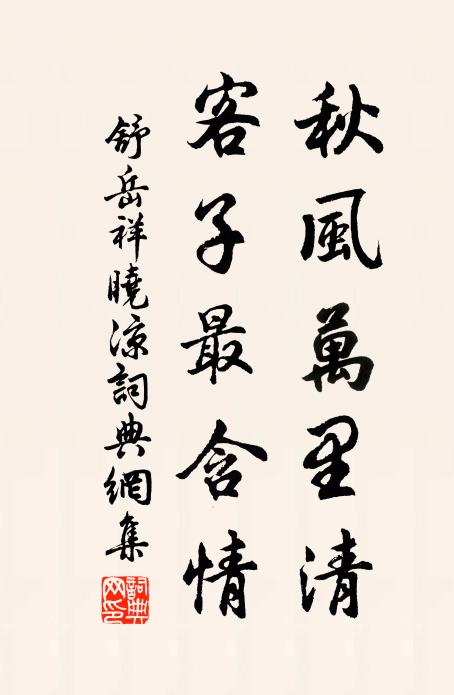 秋風萬里清
客子最含情
舒岳祥曉涼詞典網集
詞典網印